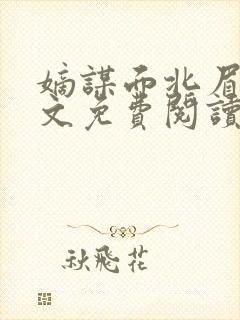 嫡謀而北眉
文免費閱讀
秋飛花